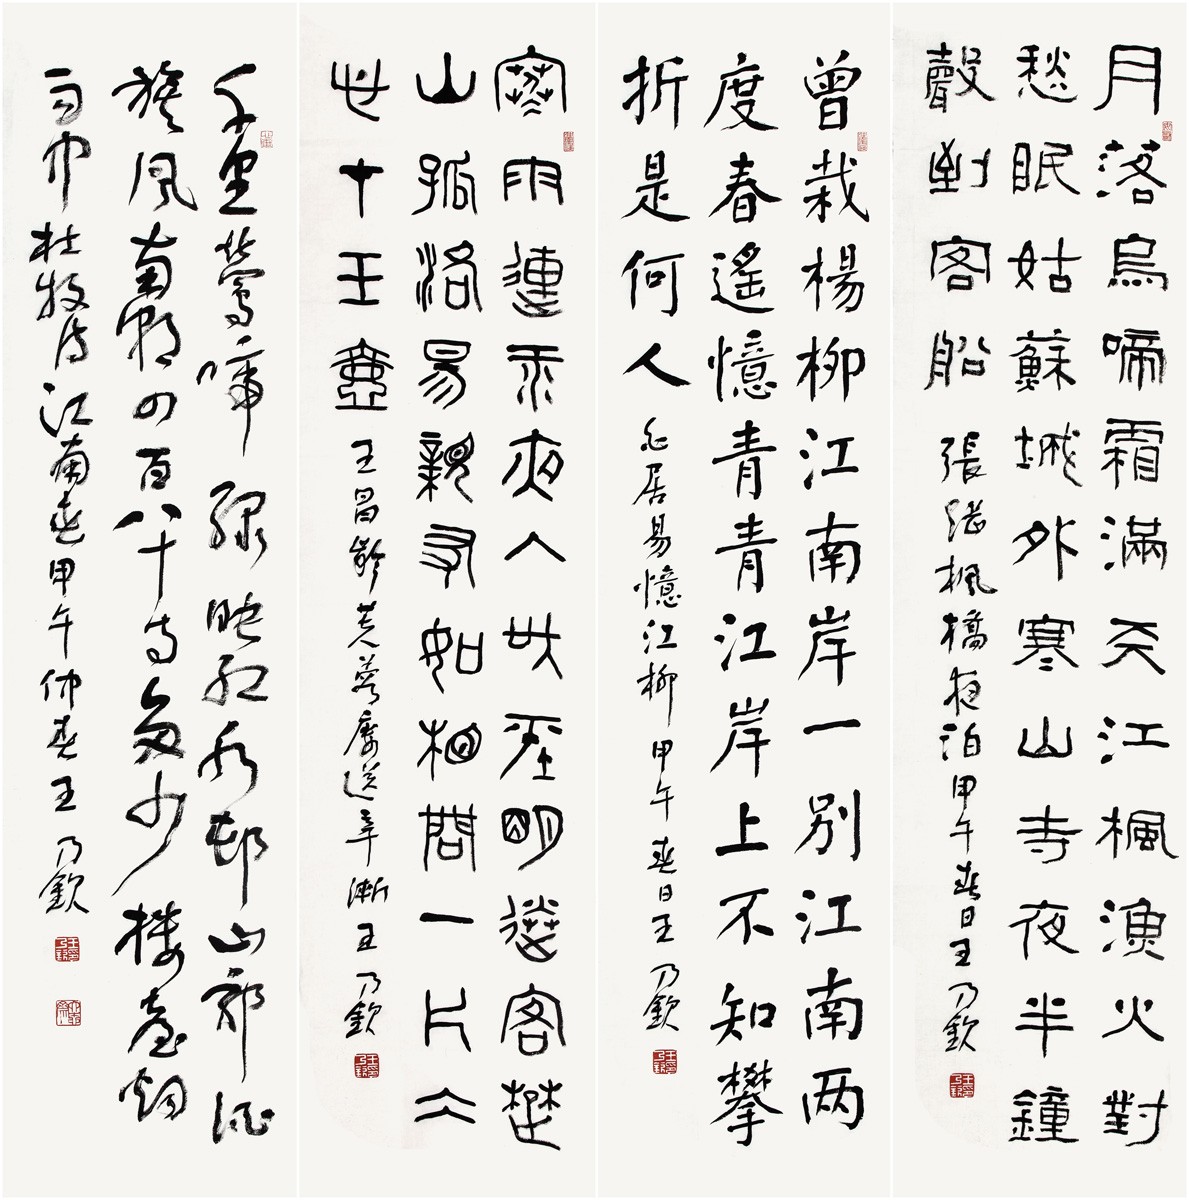 月落烏啼霜滿天江楓漁火對
愁眠姑蘇城外寒山寺夜半鐘
聲到客船 張繼楓橋夜泊甲午春日王乃欽
曾栽楊柳江南岸一別江南两
度春遙憶青青江岸上不知攀
折是何人 白居易憶江柳 甲午春日王乃欽
寒雨連天夜入吳平明送客楚
山孤洛昜親友如相問一片冰
心在玉壺 王昌齡芙蓉廔送辛漸王乃欽
千里鶯啼綠映紅水邨山郭酒
旗風南朝四百八十寺多少樓臺烟
雨中 杜牧詩江南春甲午仲春王乃欽